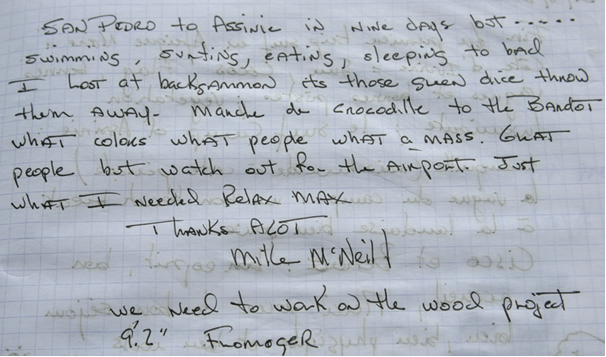 SAN PEDRO to Assinie in Nine days but .....
swimming, sunting, eating, sleeping to bad
I Lost at backgammon its those damn dice throw
them AWAY- Manche de Crocodille to the BANDOT
WHAT colors WHAT people WHAT a MASS. Great
people but watch out for the AIRPORT. Just
WHAT I Needed Relax MAX
THANKS ALOT
Mike McNeill
we Need to work on the wood project
9'.2" FROMAGER